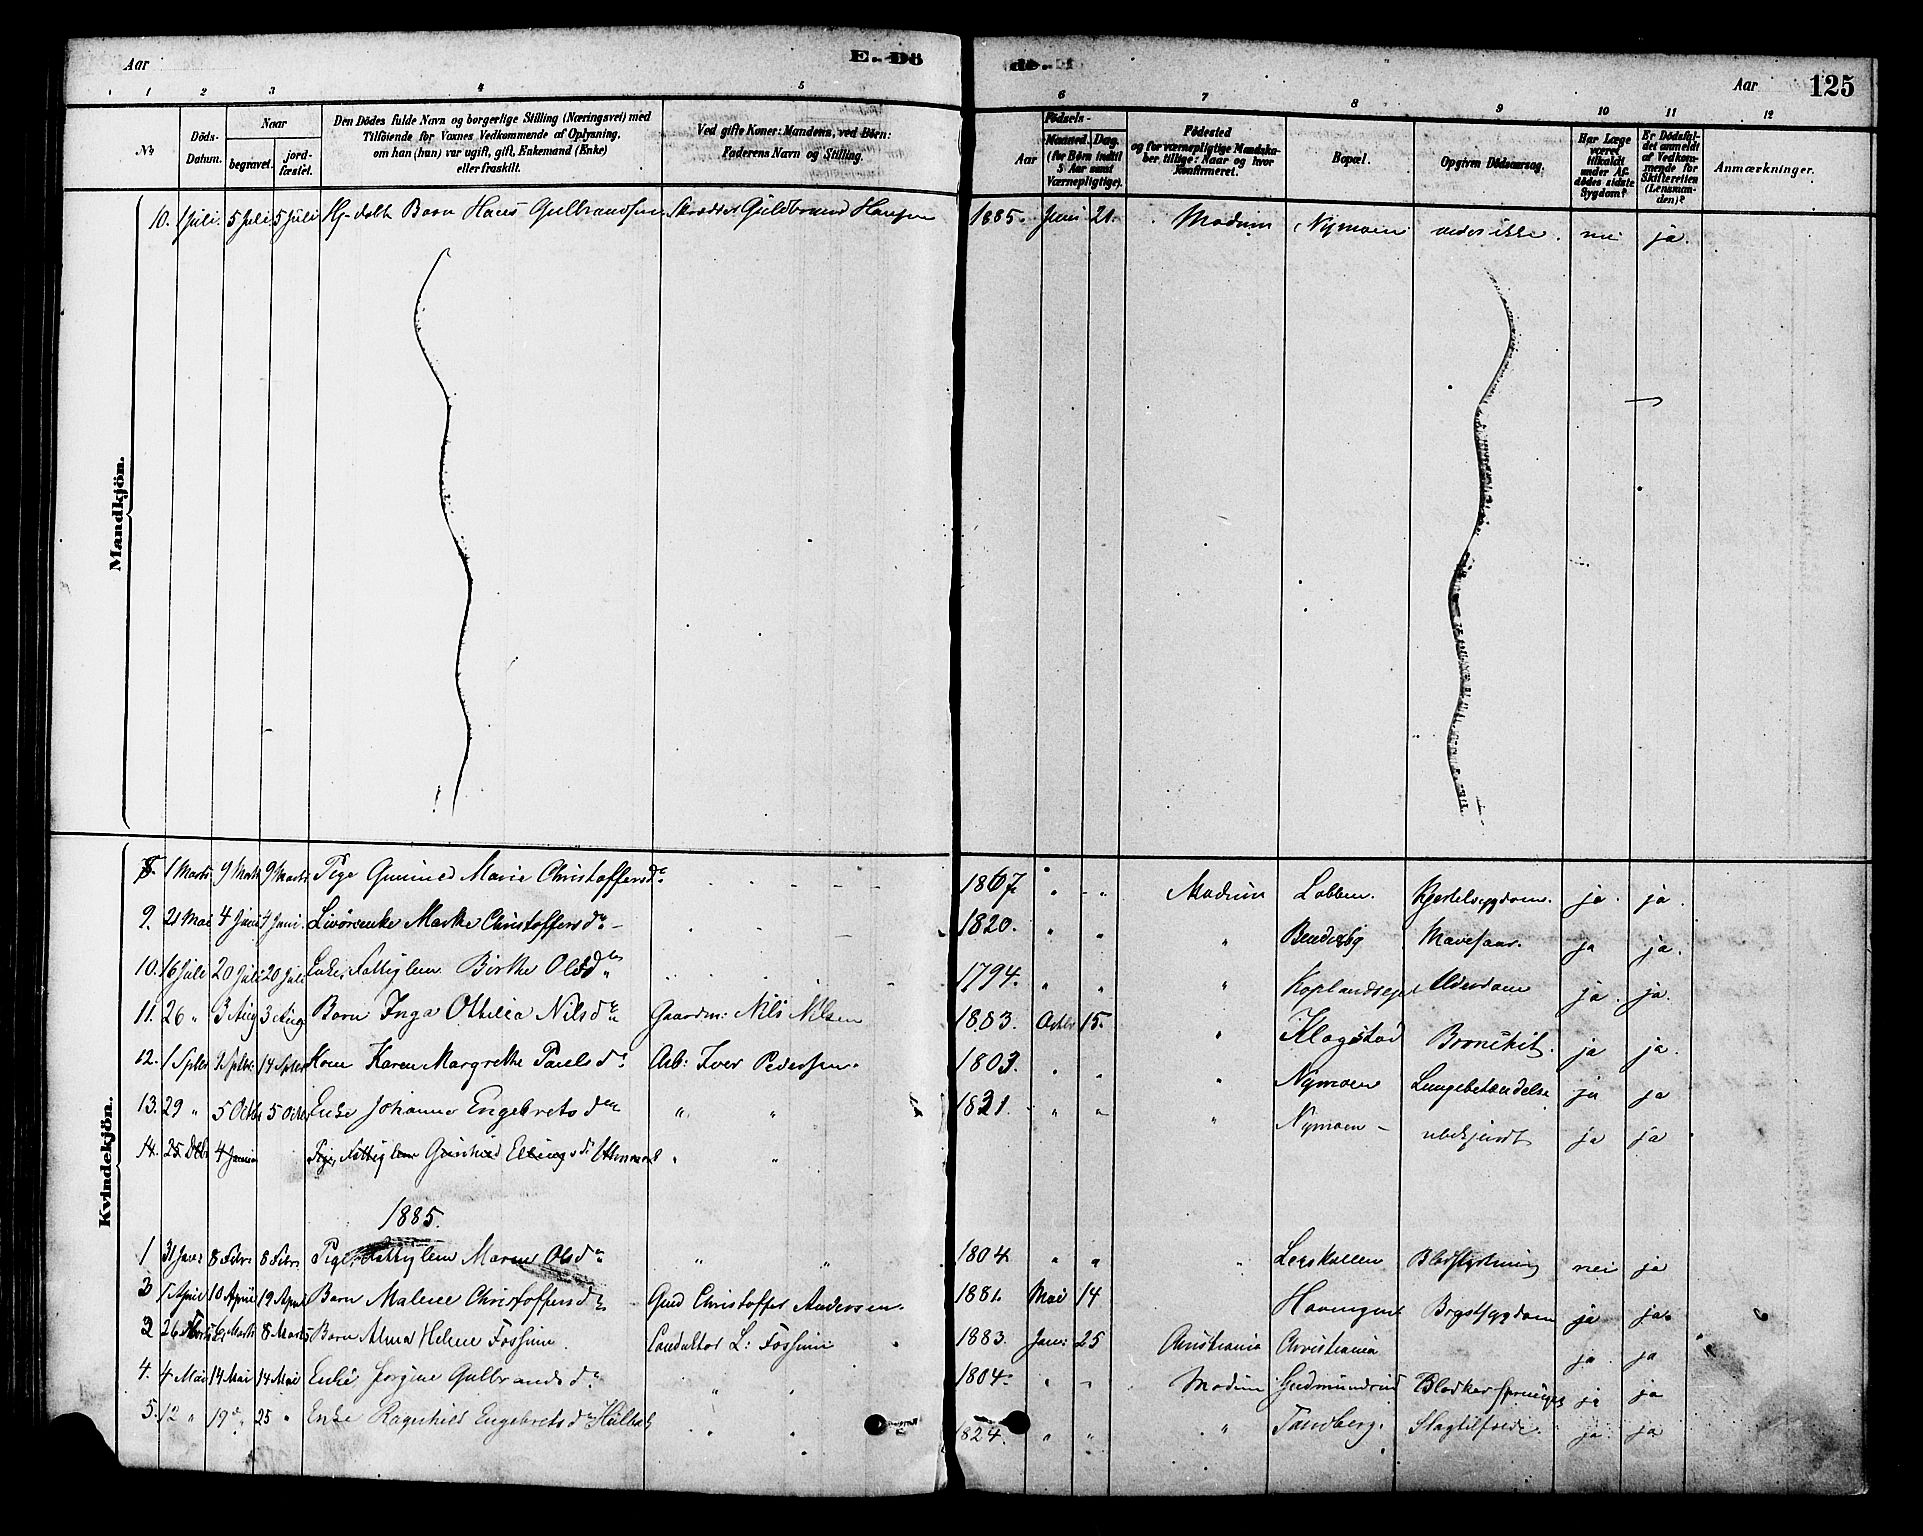 Aar
E. Dö
de.
Aar
125
1 2 3 4 5 6 7 8 9 10 11 12
No
Döds-Datum.
Naar
begravet.
jord-fæstet.
Den Dödes fulde Navn og borgerlige Stilling (Næringsvei) med
Tilföiende for Voxnes Vedkommende af Oplysning,
om han (hun) var ugift, gift, Enkemand (Enke)
eller fraskilt.
Ved gifte Koner: Mandens, ved Börn:
Faderens Navn og Stilling.
Födsels-
Aar
Maaned. Dag.
(for Börn indtil
5 Aar samt
Værnepligtige).
Födested
og for værnepligtige Mandska-
ber tillige: Naar og hvor
Konfirmeret.
Bopæl.
Opgiven Dödsaarsag.
Har Læge
været
tilkaldt
under Af-
dödes sidste
Sygdom?
Er Dödsfal-
det anmeldt
af Vedkom-
mende for
Skifteretten
(Lensman-
den)?
Anmærkninger.
Mandkjön.
10. 1 Juli. 5 Juli. 5 Juli Hj-døbt Barn Hans Gulbrandsen Skrædder Guldbrand Hansen 1885. Juni 21. Modum Nymoen vides ikke. nei ja.
Kvindekjön.
8. 1 Marts 9 Marts 9 Marts Pige Gunild Marie Christoffersdr 1867 " " Modum Lobben Hjertesygdom. ja. ja.
9. 21 Mai 4 Juni 4 Juni. Livørenke Marthe Christoffersdr 1820. " " " Mavesaar. ja ja.
10. 16 Juli 20 Juli 20 Juli Enke, Fattiglem Birthe Olsdr 1794. " " " Alderdom ja. ja.
11. 26 " 3 Aug 3 Aug Barn Inga Ottilia Nilsdr Gaardm: Nils Nilsen 1883. Octbr 15. " Klogstad Bronchit. ja ja.
12. 1 Septbr Septbr. 14 Septbr Kone Karen Margrethe Paulsdr Arb: Iver Pedersen. 1803. " " " Nymoen Lungebetændelse ja ja
13. 29 " 5 Octbr 5 Octbr Enke Johanne Engebretsdr " " 1821. " " " Nymoen ubekjendt ja ja
14. 25 Dcbr 4 Januar Pige, Fattiglem Gunhild Ellingsdr " "
1885.
1 31 Janr 8 Febr. 8 Febr. Pige, Fattiglem Maren Olsdr " " 1804 " " " Leerskallen Blodstyrtning nei ja
3 1 April 10 April 19 April Barn Malene Christoffersdr Gmd Christoffer Andersen. 1881. Mai 14 Brystsygdom ja ja.
2 26 Marts 8 Marts Barn Alma Helene Fossum. L: Fossum 1883. Janr 25 Christiania Christiania ja. ja
4. 4 Mai 14 Mai 14 Mai Enke Jorgine Gulbrandsdr " " 1804. " " Modum Gudmundrud ja ja
5. 12 " 19de " 25 " Enke Ragnhild Engebretsdr " " 1824. " " " Tandberg. Slagtilfælde. ja. ja